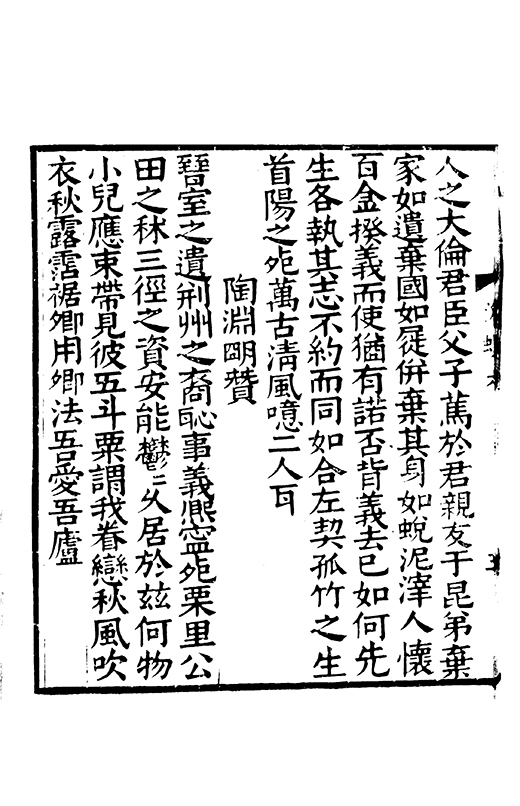 人之大倫君臣父子篤於君親友于昆弟棄
家如遺棄國如屣併棄其身如蛻泥滓人懷
百金揆義而使猶有諾否背義去已如何先
生各執其志不約而同如合左契孤竹之生
首陽之死萬古清風噫二人耳
陶淵明贊
晉室之遺荊州之裔恥事義熙寧死栗里公
田之秫三徑之資安能鬱〻久居於玆何物
小兒應束帶見彼五斗粟謂我眷戀秋風吹
衣秋露霑裾卿用卿法吾愛吾廬